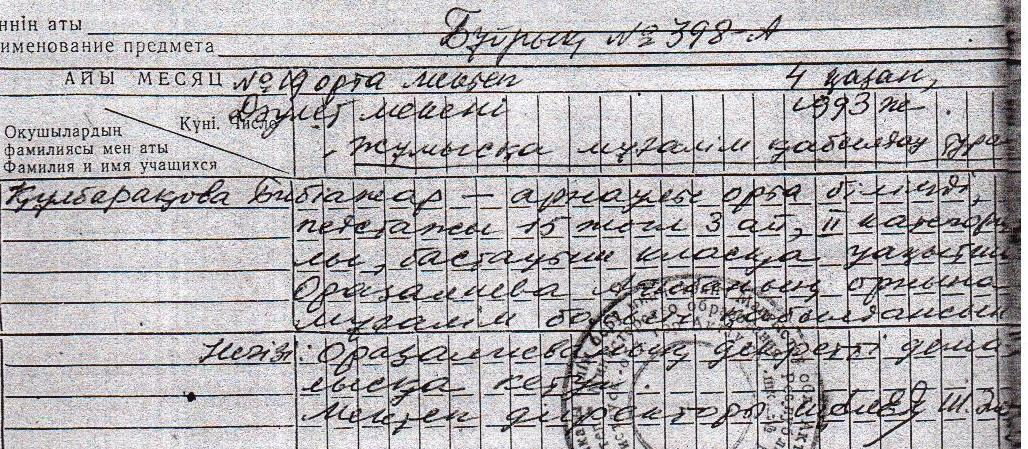 ннің аты
именование предмета Бұйрық № 398-А
АЙЫ МЕСЯЦ № орта мектеп 4 қазан,
мекені 1993 ж
Күні. Число
Окушылардың
фамилиясы мен аты
Фамилия и имя учащихся
Жұмысқа мұғалім қабылдау тура
Құлбарақова Бибіажар – арнаулы орта білімді,
педстажы 15 жыл 3 ай, II категори
лы, бастауыш класқа уақытша
Оразалиева орнына
мұғалім болып қабылдансын
Негізі: Оразалиеваның декретті дема
лысқа кетуі.
Мектеп директоры